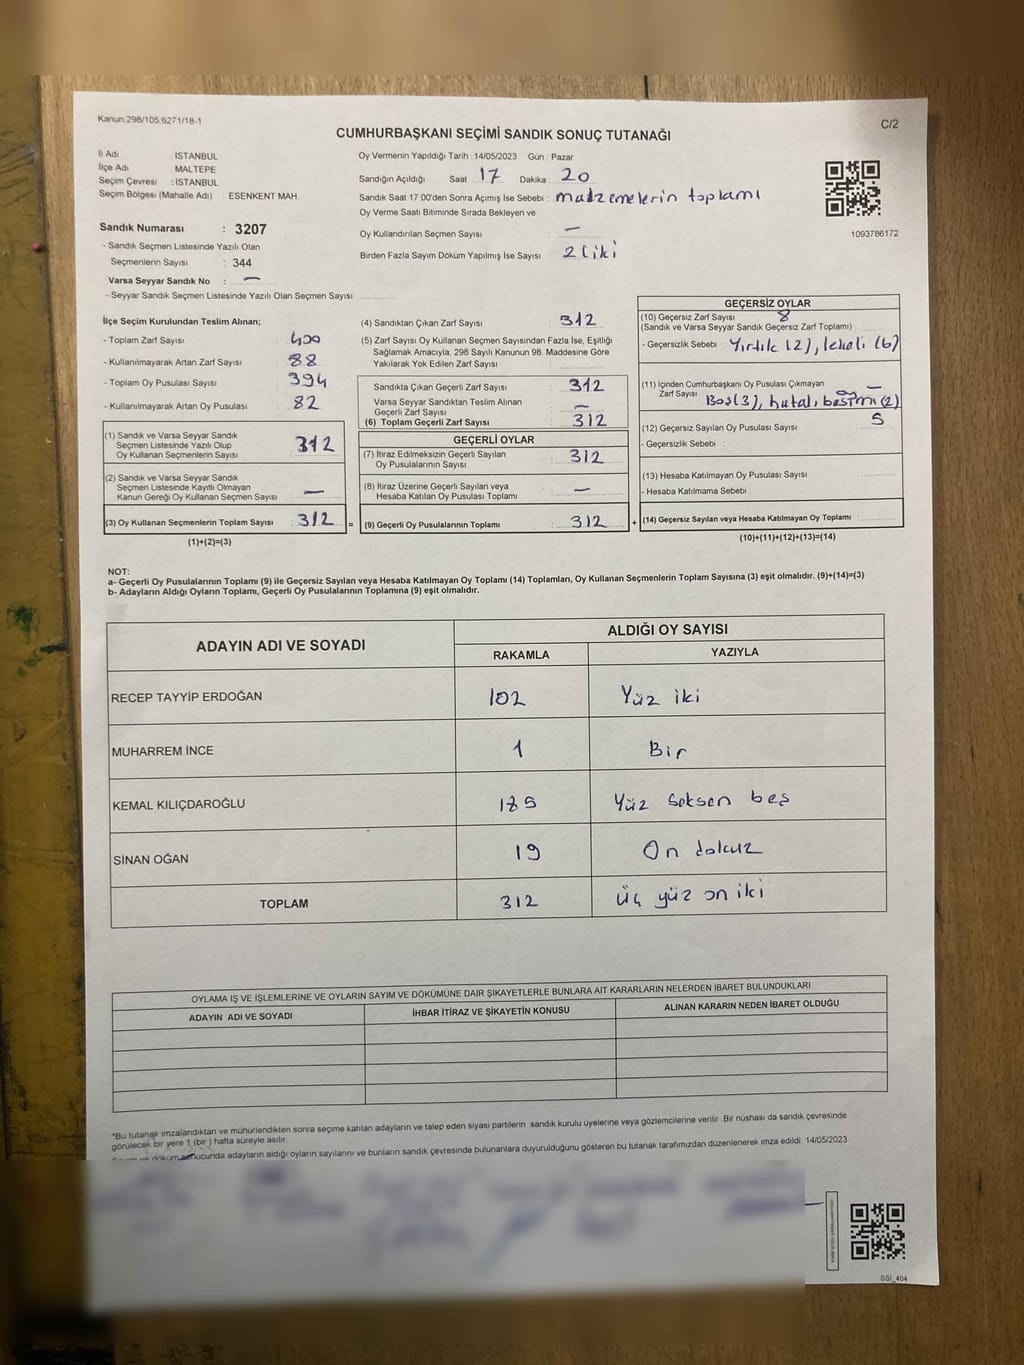 Kanun.298/105,6271/18-1
C/2
CUMHURBAŞKANI SEÇİMİ SANDIK SONUÇ TUTANAĞI
İl Adı : İSTANBUL
İlçe Adı : MALTEPE
Seçim Çevresi : İSTANBUL
Seçim Bölgesi (Mahalle Adı) : ESENKENT MAH
Sandık Numarası : 3207
- Sandık Seçmen Listesinde Yazılı Olan
Seçmenlerin Sayısı : 344
Varsa Seyyar Sandık No : —
- Seyyar Sandık Seçmen Listesinde Yazılı Olan Seçmen Sayısı
Oy Vermenin Yapıldığı Tarih : 14/05/2023 Gün : Pazar
Sandığın Açıldığı Saat 17 Dakika : 20
Sandık Saat 17.00'den Sonra Açımış İse Sebebi : malzemelerin toplamı
Oy Verme Saati Bitiminde Sırada Bekleyen ve
Oy Kullandırılan Seçmen Sayısı : —
Birden Fazla Sayım Döküm Yapılmış İse Sayısı : 2 (iki
1093786172
İlçe Seçim Kurulundan Teslim Alınan;
- Toplam Zarf Sayısı : 400
- Kullanılmayarak Artan Zarf Sayısı : 88
- Toplam Oy Pusulası Sayısı : 394
- Kullanılmayarak Artan Oy Pusulası : 82
(1) Sandık ve Varsa Seyyar Sandık
Seçmen Listesinde Yazılı Olup
Oy Kullanan Seçmenlerin Sayısı : 312
(2) Sandık ve Varsa Seyyar Sandık
Seçmen Listesinde Kayıtlı Olmayan
Kanun Gereği Oy Kullanan Seçmen Sayısı : —
(3) Oy Kullanan Seçmenlerin Toplam Sayısı : 312 =
(1)+(2)=(3)
(4) Sandıktan Çıkan Zarf Sayısı : 312
(5) Zarf Sayısı Oy Kullanan Seçmen Sayısından Fazla İse, Eşitliği
Sağlamak Amacıyla, 298 Sayılı Kanunun 98. Maddesine Göre
Yakılarak Yok Edilen Zarf Sayısı
Sandıkta Çıkan Geçerli Zarf Sayısı : 312
Varsa Seyyar Sandıktan Teslim Alınan
Geçerli Zarf Sayısı : —
(6) Toplam Geçerli Zarf Sayısı : 312
GEÇERLİ OYLAR
(7) İtiraz Edilmeksizin Geçerli Sayılan
Oy Pusulalarının Sayısı : 312
(8) İtiraz Üzerine Geçerli Sayılan veya
Hesaba Katılan Oy Pusulası Toplamı : —
(9) Geçerli Oy Pusulalarının Toplamı : 312 +
GEÇERSİZ OYLAR
(10) Geçersiz Zarf Sayısı : 8
(Sandık ve Varsa Seyyar Sandık Geçersiz Zarf Toplamı)
- Geçersizlik Sebebi : Yırtık (2), lekeli (6)
(11) İçinden Cumhurbaşkanı Oy Pusulası Çıkmayan
Zarf Sayısı : —
Boş(3), hatalı basım (2)
(12) Geçersiz Sayılan Oy Pusulası Sayısı : 5
- Geçersizlik Sebebi :
(13) Hesaba Katılmayan Oy Pusulası Sayısı
- Hesaba Katılmama Sebebi :
(14) Geçersiz Sayılan veya Hesaba Katılmayan Oy Toplamı :
(10)+(11)+(12)+(13)=(14)
NOT:
a- Geçerli Oy Pusulalarının Toplamı (9) ile Geçersiz Sayılan veya Hesaba Katılmayan Oy Toplamı (14) Toplamları, Oy Kullanan Seçmenlerin Toplam Sayısına (3) eşit olmalıdır. (9)+(14)=(3)
b- Adayların Aldığı Oyların Toplamı, Geçerli Oy Pusulalarının Toplamına (9) eşit olmalıdır.
ADAYIN ADI VE SOYADI
ALDIĞI OY SAYISI
RAKAMLA YAZIYLA
RECEP TAYYİP ERDOĞAN 102 Yüz iki
MUHARREM İNCE 1 Bir
KEMAL KILIÇDAROĞLU 185 Yüz seksen beş
SİNAN OĞAN 19 On dokuz
TOPLAM 312 Üç yüz on iki
OYLAMA İŞ VE İŞLEMLERİNE VE OYLARIN SAYIM VE DÖKÜMÜNE DAİR ŞİKAYETLERLE BUNLARA AİT KARARLARIN NELERDEN İBARET BULUNDUKLARI
ADAYIN ADI VE SOYADI İHBAR İTİRAZ VE ŞİKAYETİN KONUSU ALINAN KARARIN NEDEN İBARET OLDUĞU
*Bu tutanak imzalandıktan ve mühürlendikten sonra seçime katılan adayların ve talep eden siyasi partilerin sandık kurulu üyelerine veya gözlemcilerine verilir. Bir nüshası da sandık çevresinde
görülecek bir yere 1 (bir) hafta süreyle asılır.
döküm sonucunda adayların aldığı oyların sayılarını ve bunların sandık çevresinde bulunanlara duyurulduğunu gösteren bu tutanak tarafımızdan düzenlenerek imza edildi. 14/05/2023
SSİ_404